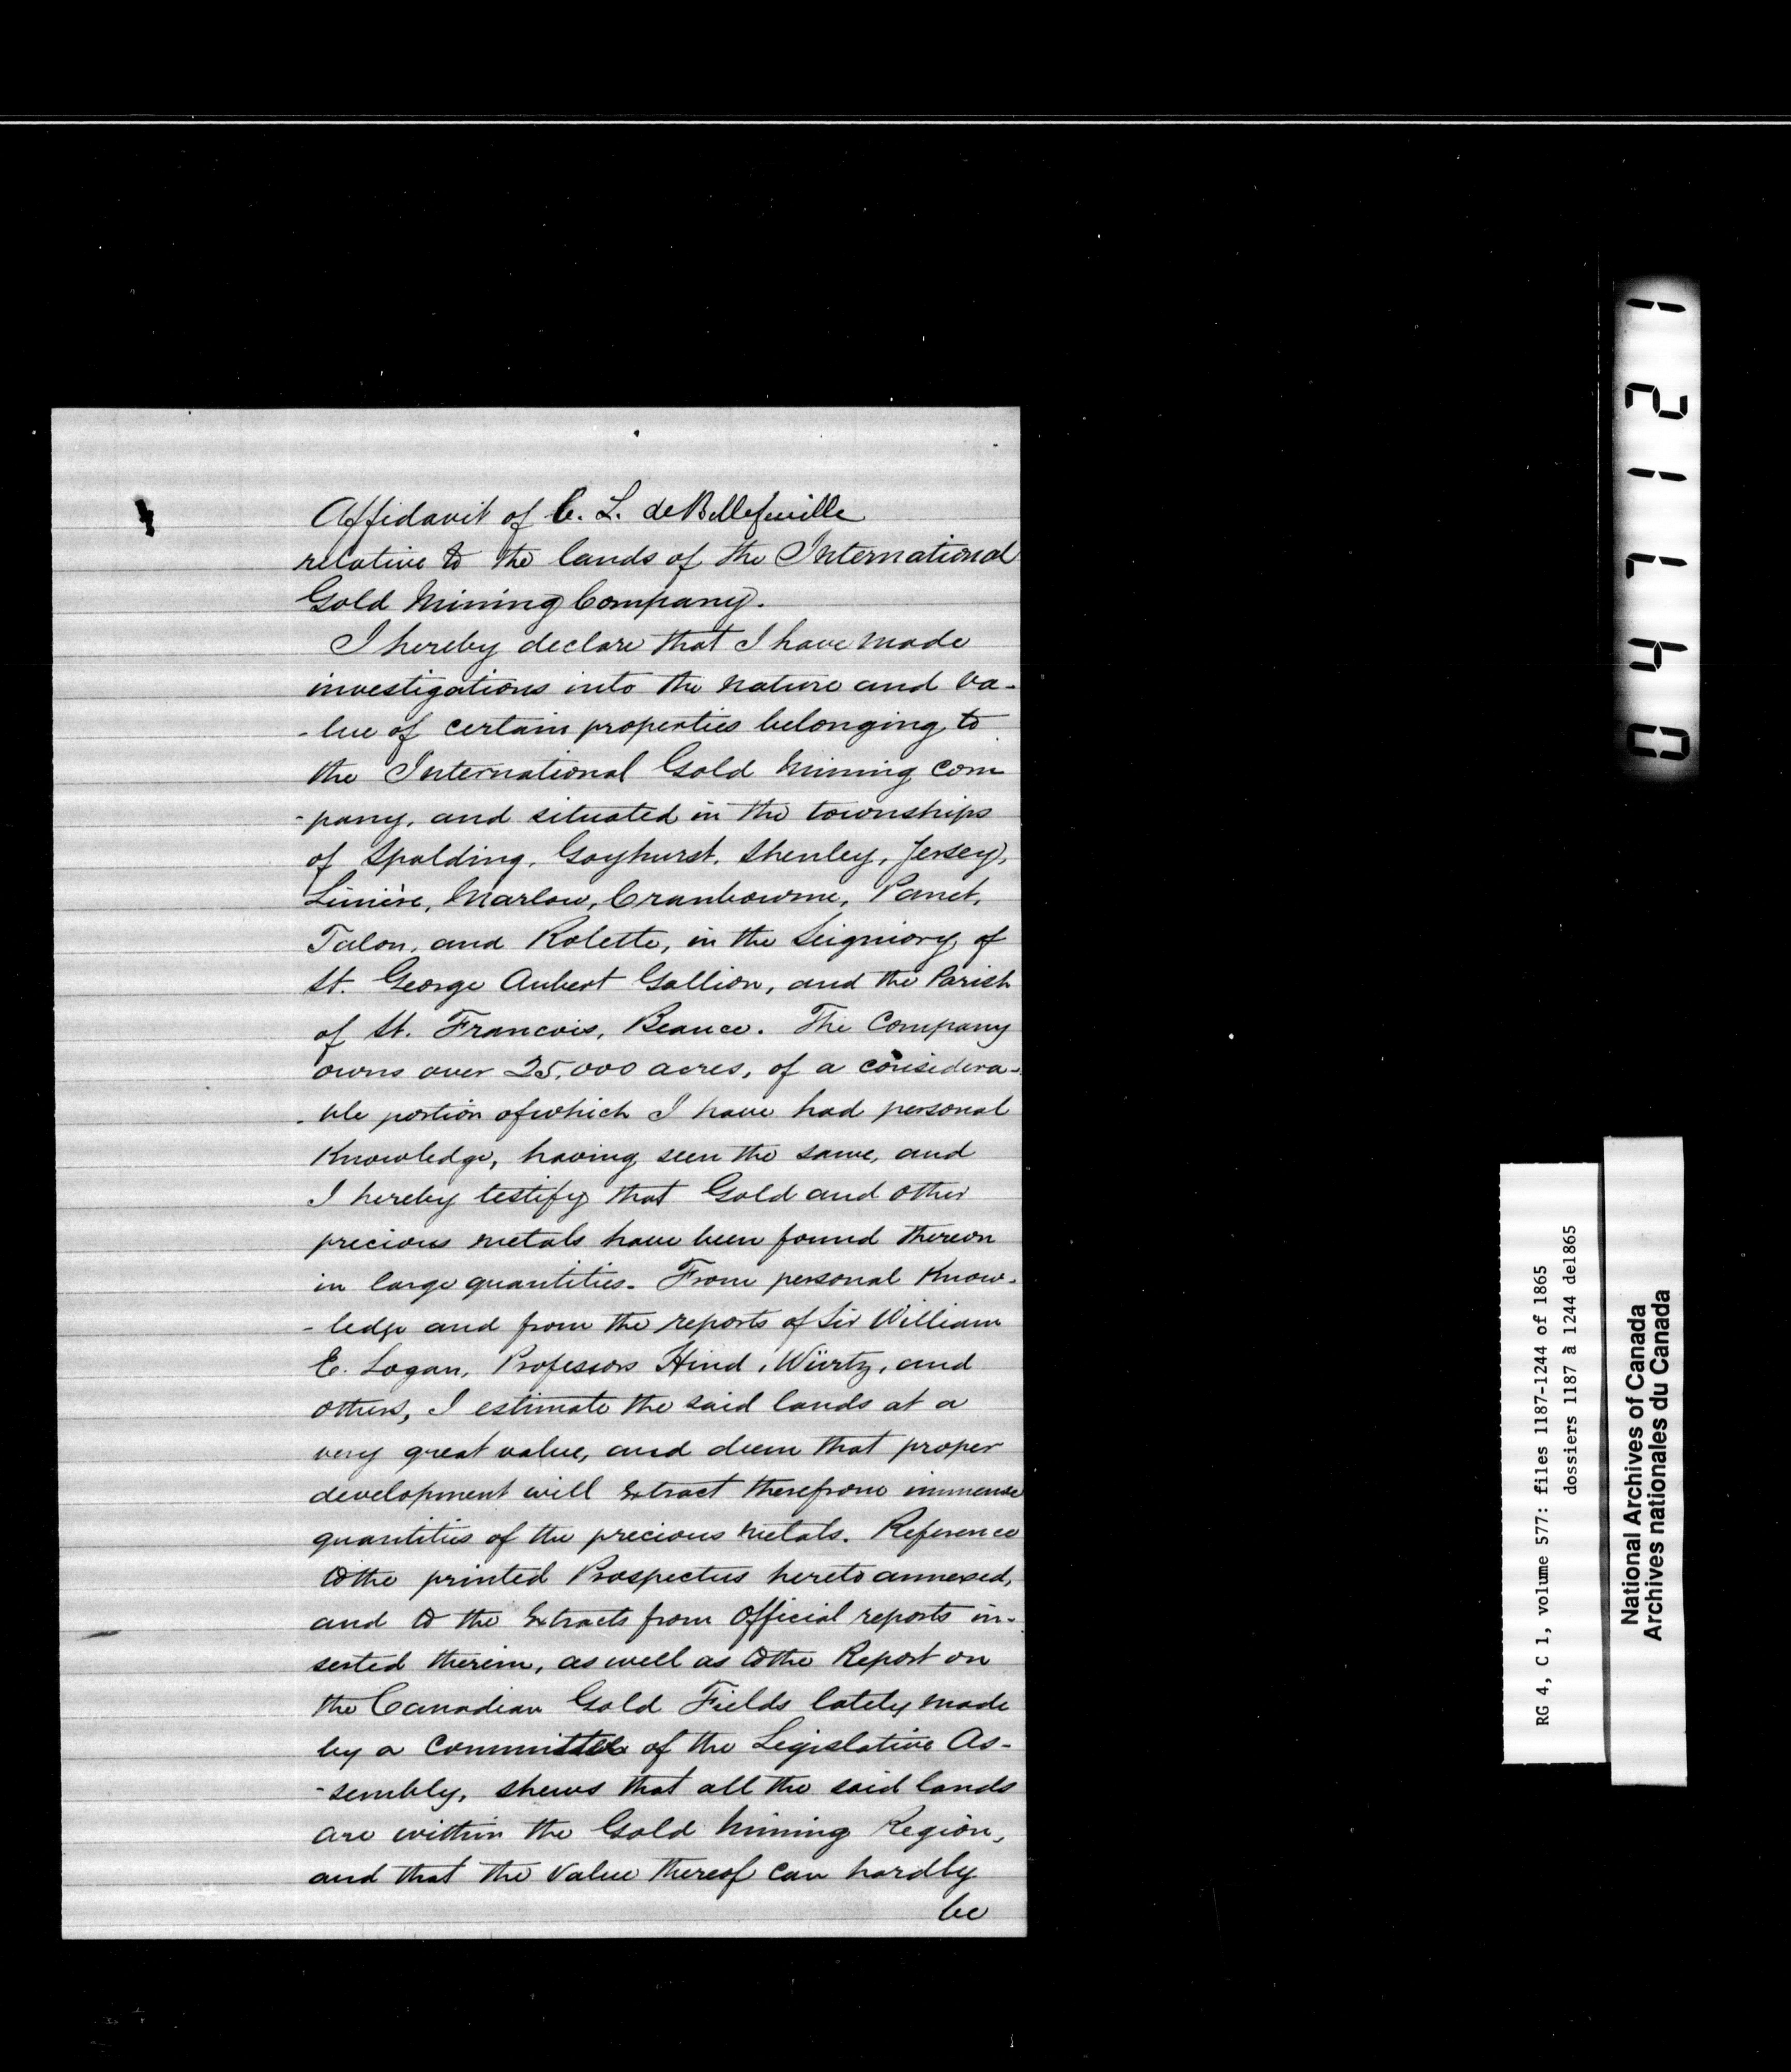 Affidavit of C. L. de Bellefeuille
relative to the lands of the International
Gold Mining Company.
I hereby declare that I have made
investigations into the nature and va-
-lue of certain properties belonging to
the International Gold Mining com
-pany, and situated in the townships
of Spalding, Gayhurst, Shenley, Jersey,
Linière, Marlow, Cranbourne, Panet,
Talon, and Rolette, in the Seigniory of
St. George Aubert Gallion, and the Parish
of St. Francois, Beauce. The Company
owns over 25,000 acres, of a considera-
-ble portion of which I have had personal
Knowledge, having seen the same, and
I hereby testify that Gold and other
precious metals have been found thereon
in large quantities. From personal Know-
-ledge and from the reports of Sir William
E. Logan, Professors Hind, Würtz, and
others, I estimate the said lands at a
very great value, and deem that proper
development will extract therefrom immense
quantities of the precious metals. Reference
to the printed Prospectus hereto annexed,
and to the Extracts from Official reports in-
serted therein, as well as to the Report on
the Canadian Gold Fields lately made
by a Committee of the Legislative As-
-sembly, shews that all the said lands
are within the Gold Mining Region,
and that the value thereof can hardly
be
047121
RG 4, C 1, volume 577: files 1187-1244 of 1865
dossiers 1187 à 1244 de1865
National Archives of Canada
Archives nationales du Canada